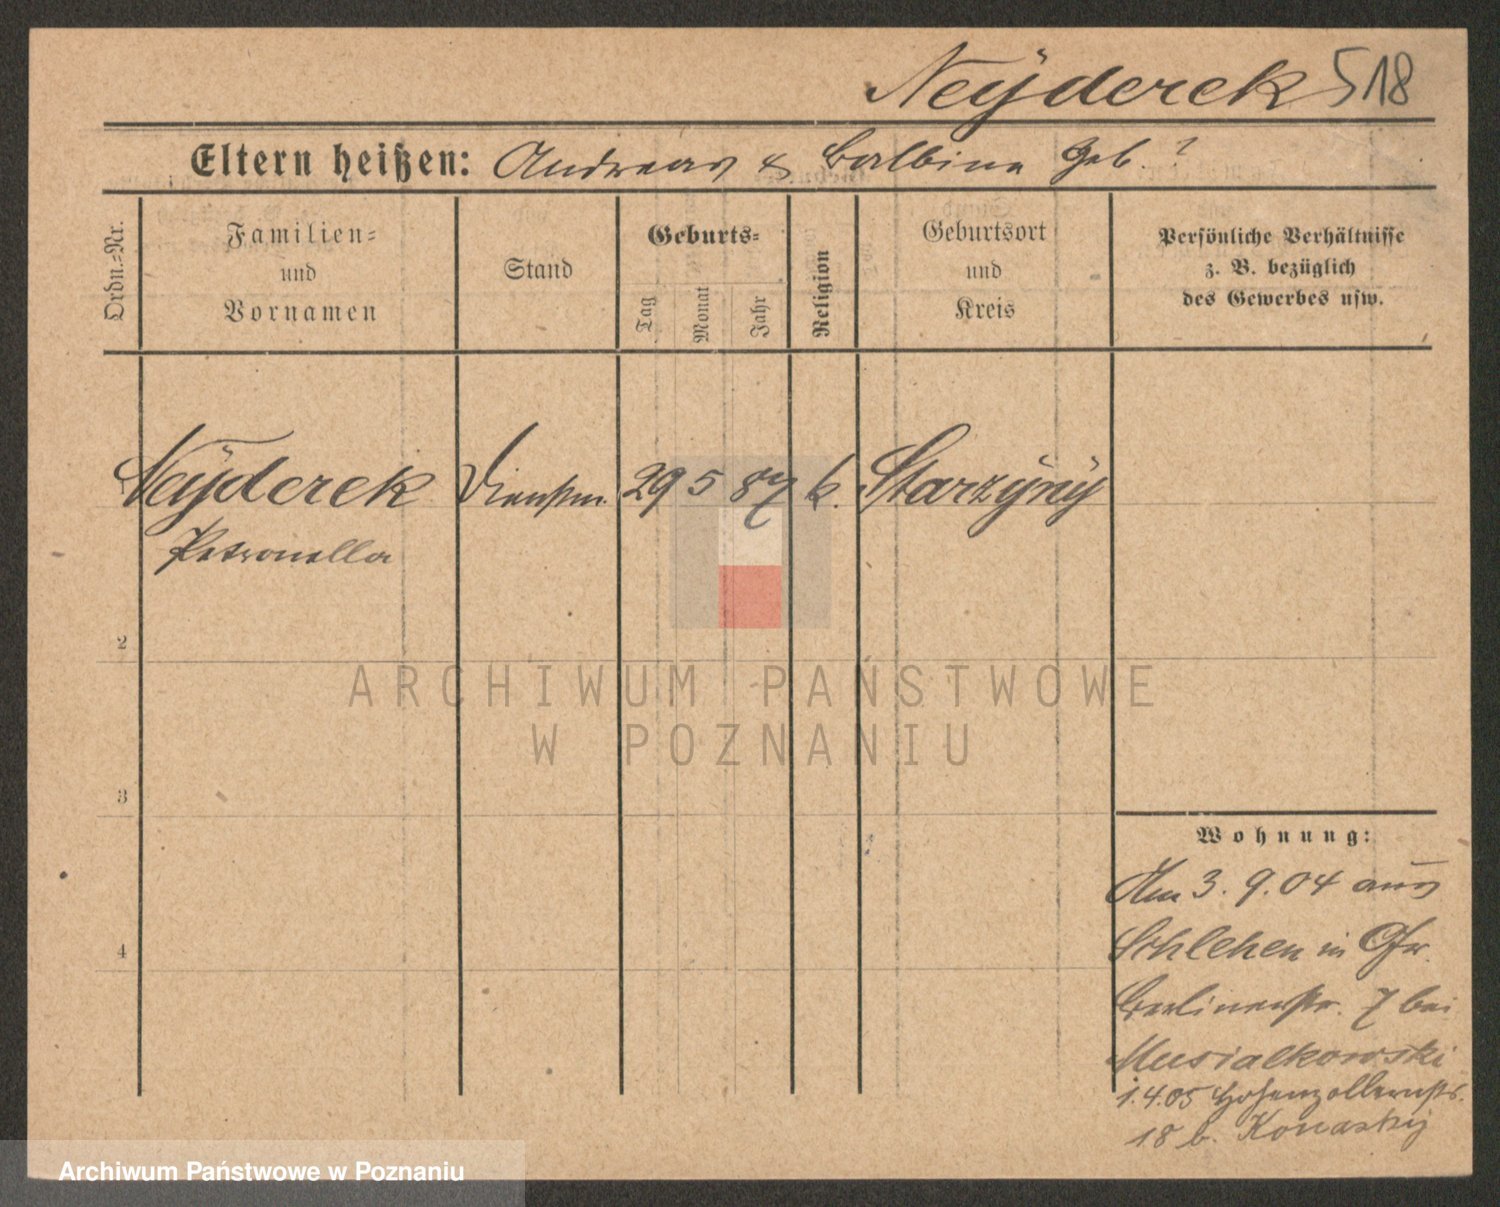 Neÿderek 518
Eltern heißen: Andreas & Balbina geb. ?
Ordn.=Nr.
Familien=
und
Vornamen
Stand
Geburts=
Tag
Monat
Jahr
Religion
Geburtsort
und
Kreis
Persönliche Verhältnisse
z. B. bezüglich
des Gewerbes usw.
Neÿderek Dienstm. 29 5 87 k. Starzÿnÿ
Petronella
2
3
4
Wohnung:
Am 3. 9. 04 aus
Schlehen in
Berlinerstr. 7 bei
Musialkowski
1.4.05 Hohenzollernstr.
18 b. Konaskÿ
ARCHIWUM PAŃSTWOWE
W POZNANIU
Archiwum Państwowe w Poznaniu